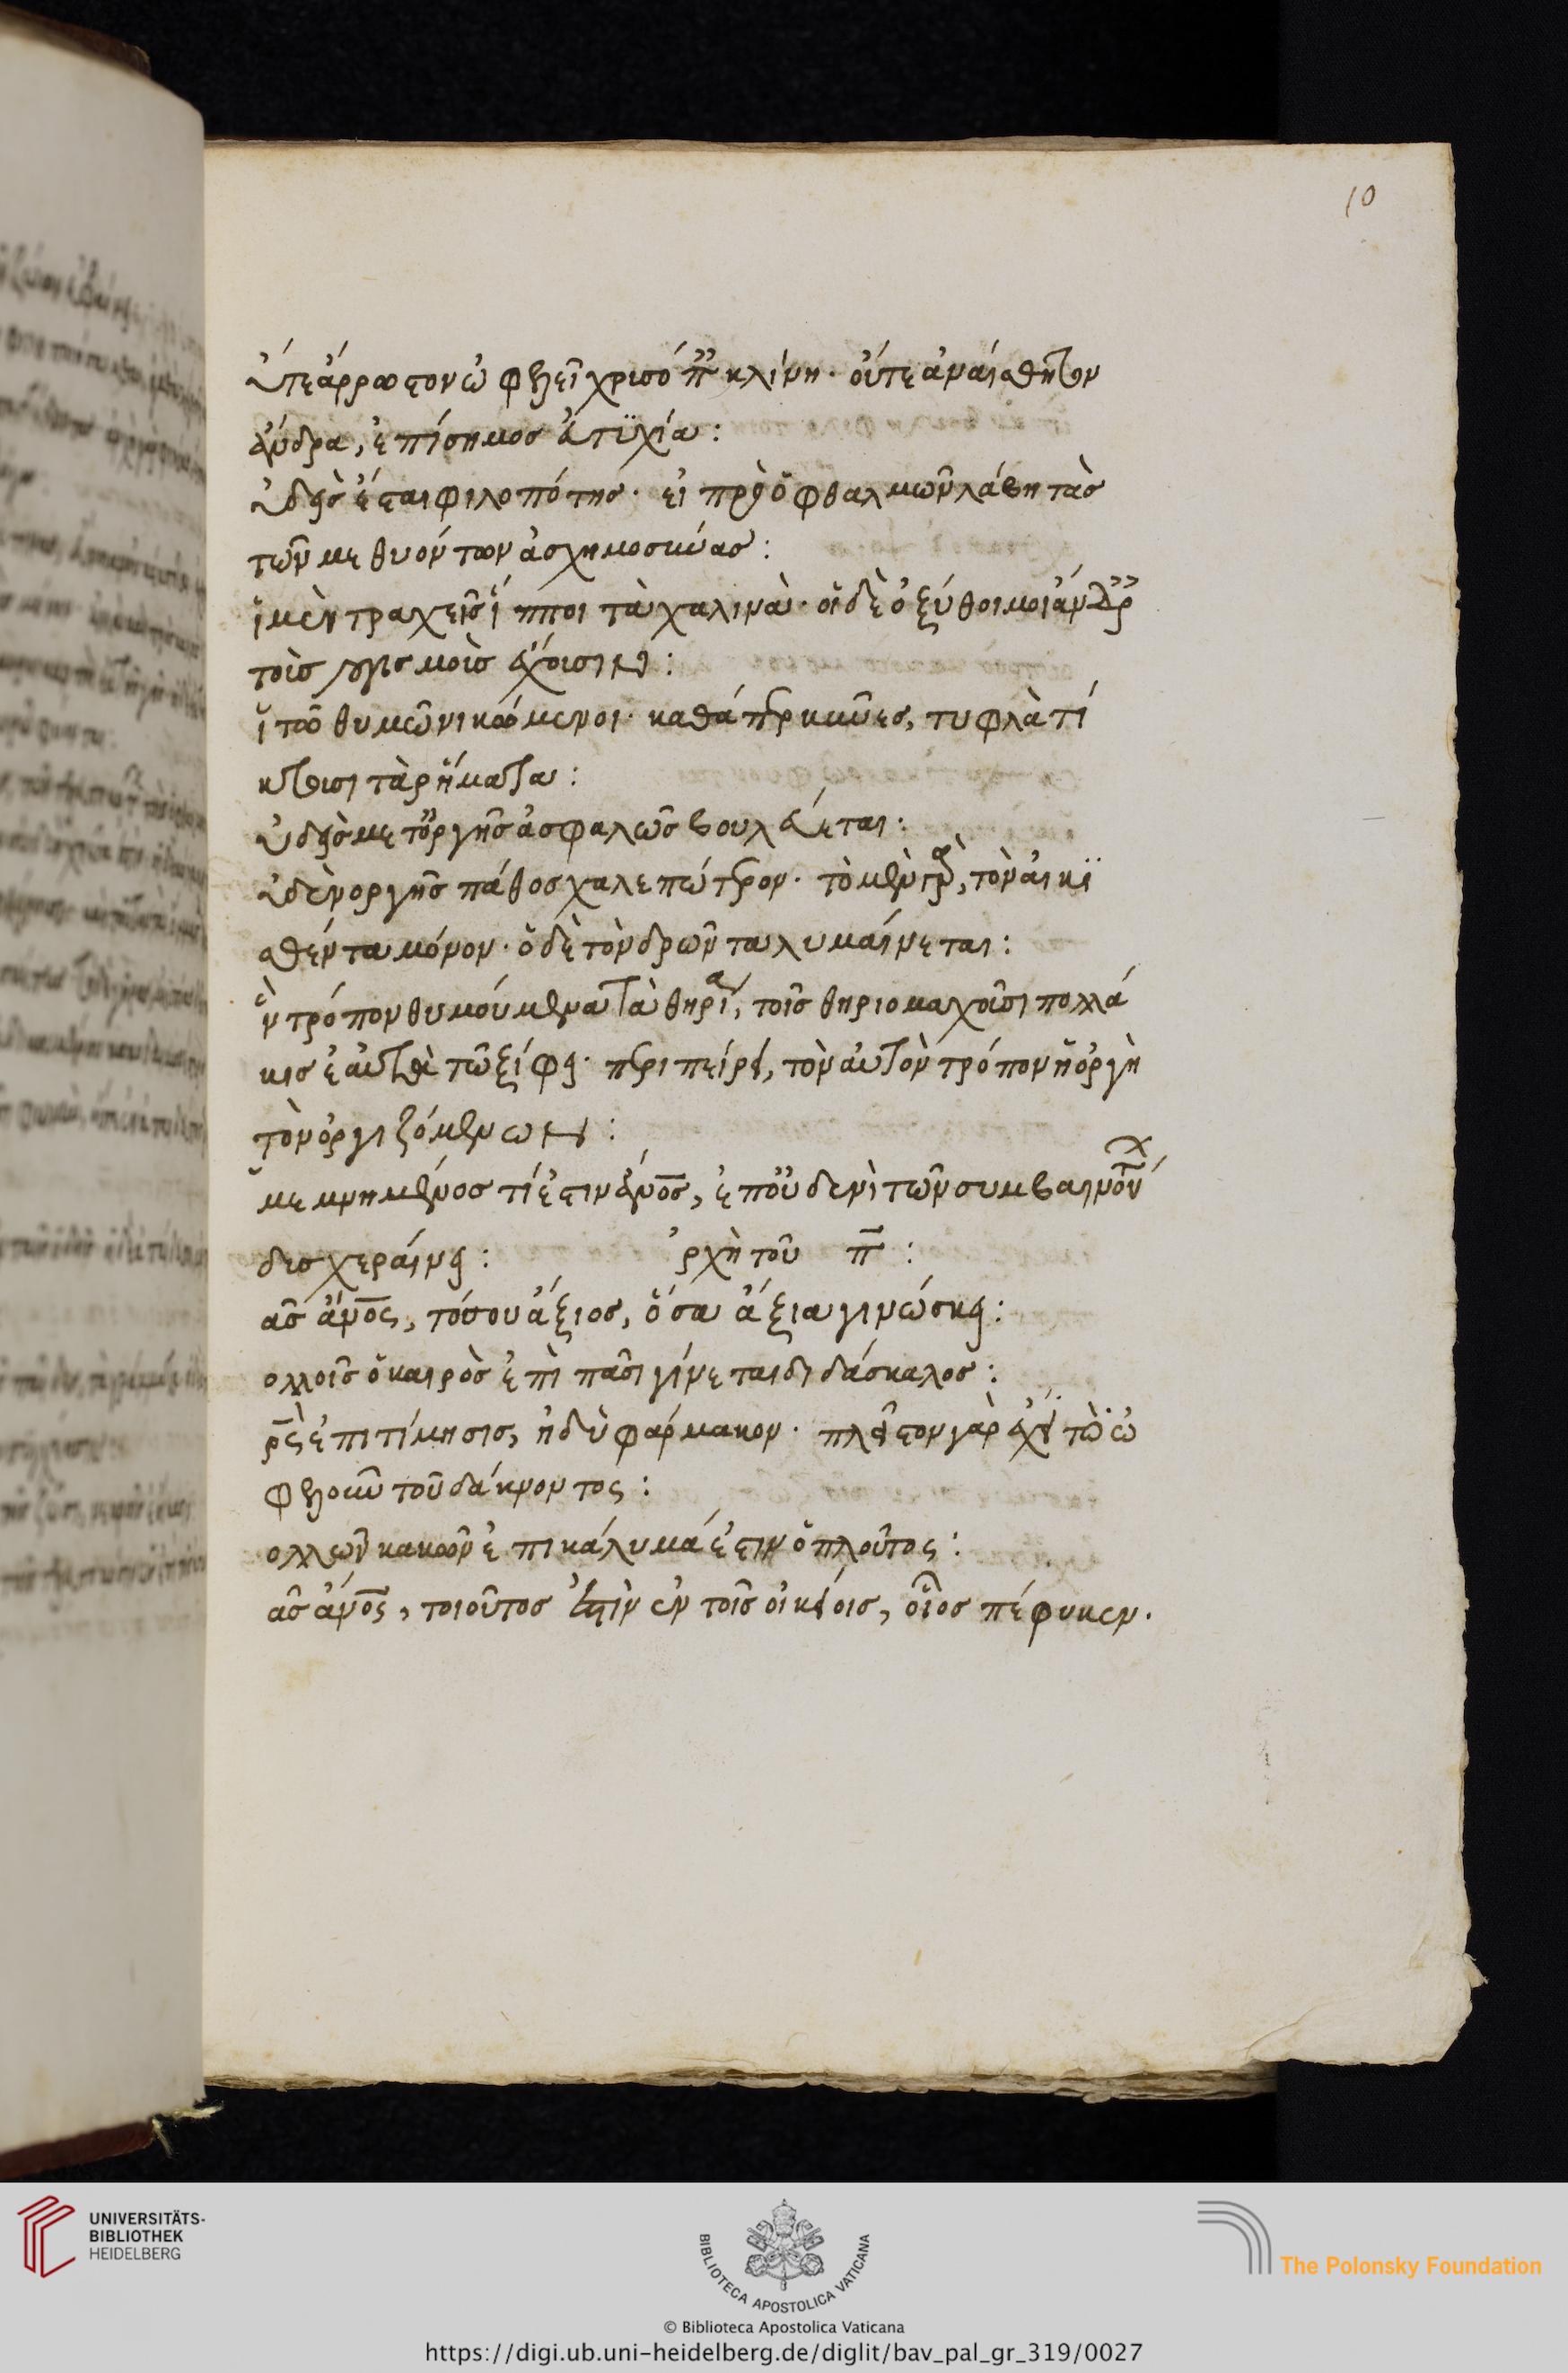 10
ὔτε ἄρρωστον ὠφελεῖ χρυσόπους κλίνη· οὔτε ἀναίσθητον
ἄνδρα, ἐπίσημος εὐτυχία:
ὐδεὶς ἔσται φιλοπότης· εἰ πρὸ ὀφθαλμῶν λάβῃ τὰς
τῶν μεθυόντων ἀσχημοσύνας:
ἱ μὲν τραχεῖς ἵπποι τὰ χαλινὰ· οἱ δὲ ὀξύθυμοι ἄνδρες
τοῖς λογισμοῖς ἄγουσιν:
ἱ τῶ θυμῶ νικώμενοι· καθάπερ κύνες, τυφλὰ τί
κτουσι τὰ ρήματα:
ὐδεὶς μετ' ὀργῆς ἀσφαλῶς βουλεύεται:
ὐδὲν ὀργῆς πάθος χαλεπώτερον· τὸ μὲν γὰρ, τὸν αἰκι
σθέντα μόνον· ὁ δὲ τὸν δρῶντα λυμαίνεται:
ν τρόπον θυμούμενα τὰ θηρία, τοῖς θηριομαχοῦσι πολλά
κις ἑαυτὰ τῶ ξίφει· περιπείρει, τὸν αὐτὸν τρόπον ἡ ὀργὴ
τὸν ὀργιζόμενον:
μεμνημένος τί ἐστιν ἄνος, ἐπ' οὐδενὶ τῶν συμβαινόντων
δυσχεραίνει:
ρχὴ τοῦ π:
ᾶς ἄνος, τόσου ἄξιος, ὅσα ἄξια γινώσκει:
ολλοῖς ὁ καιρὸς ἐπὶ πᾶσι γίνεται διδάσκαλος:
ρς ἐπιτίμησις, ἡδὺ φάρμακον· πλεῖστον γὰρ ἔχει τὸ ὠ
φελοῦν τοῦ δάκνοντος:
ολλῶν κακῶν ἐπικάλυμά ἐστιν ὁ πλοῦτος:
ᾶς ἄνος, τοιοῦτος ἐστὶν ἐν τοῖς οἰκείοις, οἷος πέφυκεν.
UNIVERSITÄTS-
BIBLIOTHEK
HEIDELBERG
BIBLIOTECA APOSTOLICA VATICANA
The Polonsky Foundation
© Biblioteca Apostolica Vaticana
https://digi.ub.uni-heidelberg.de/diglit/bav_pal_gr_319/0027